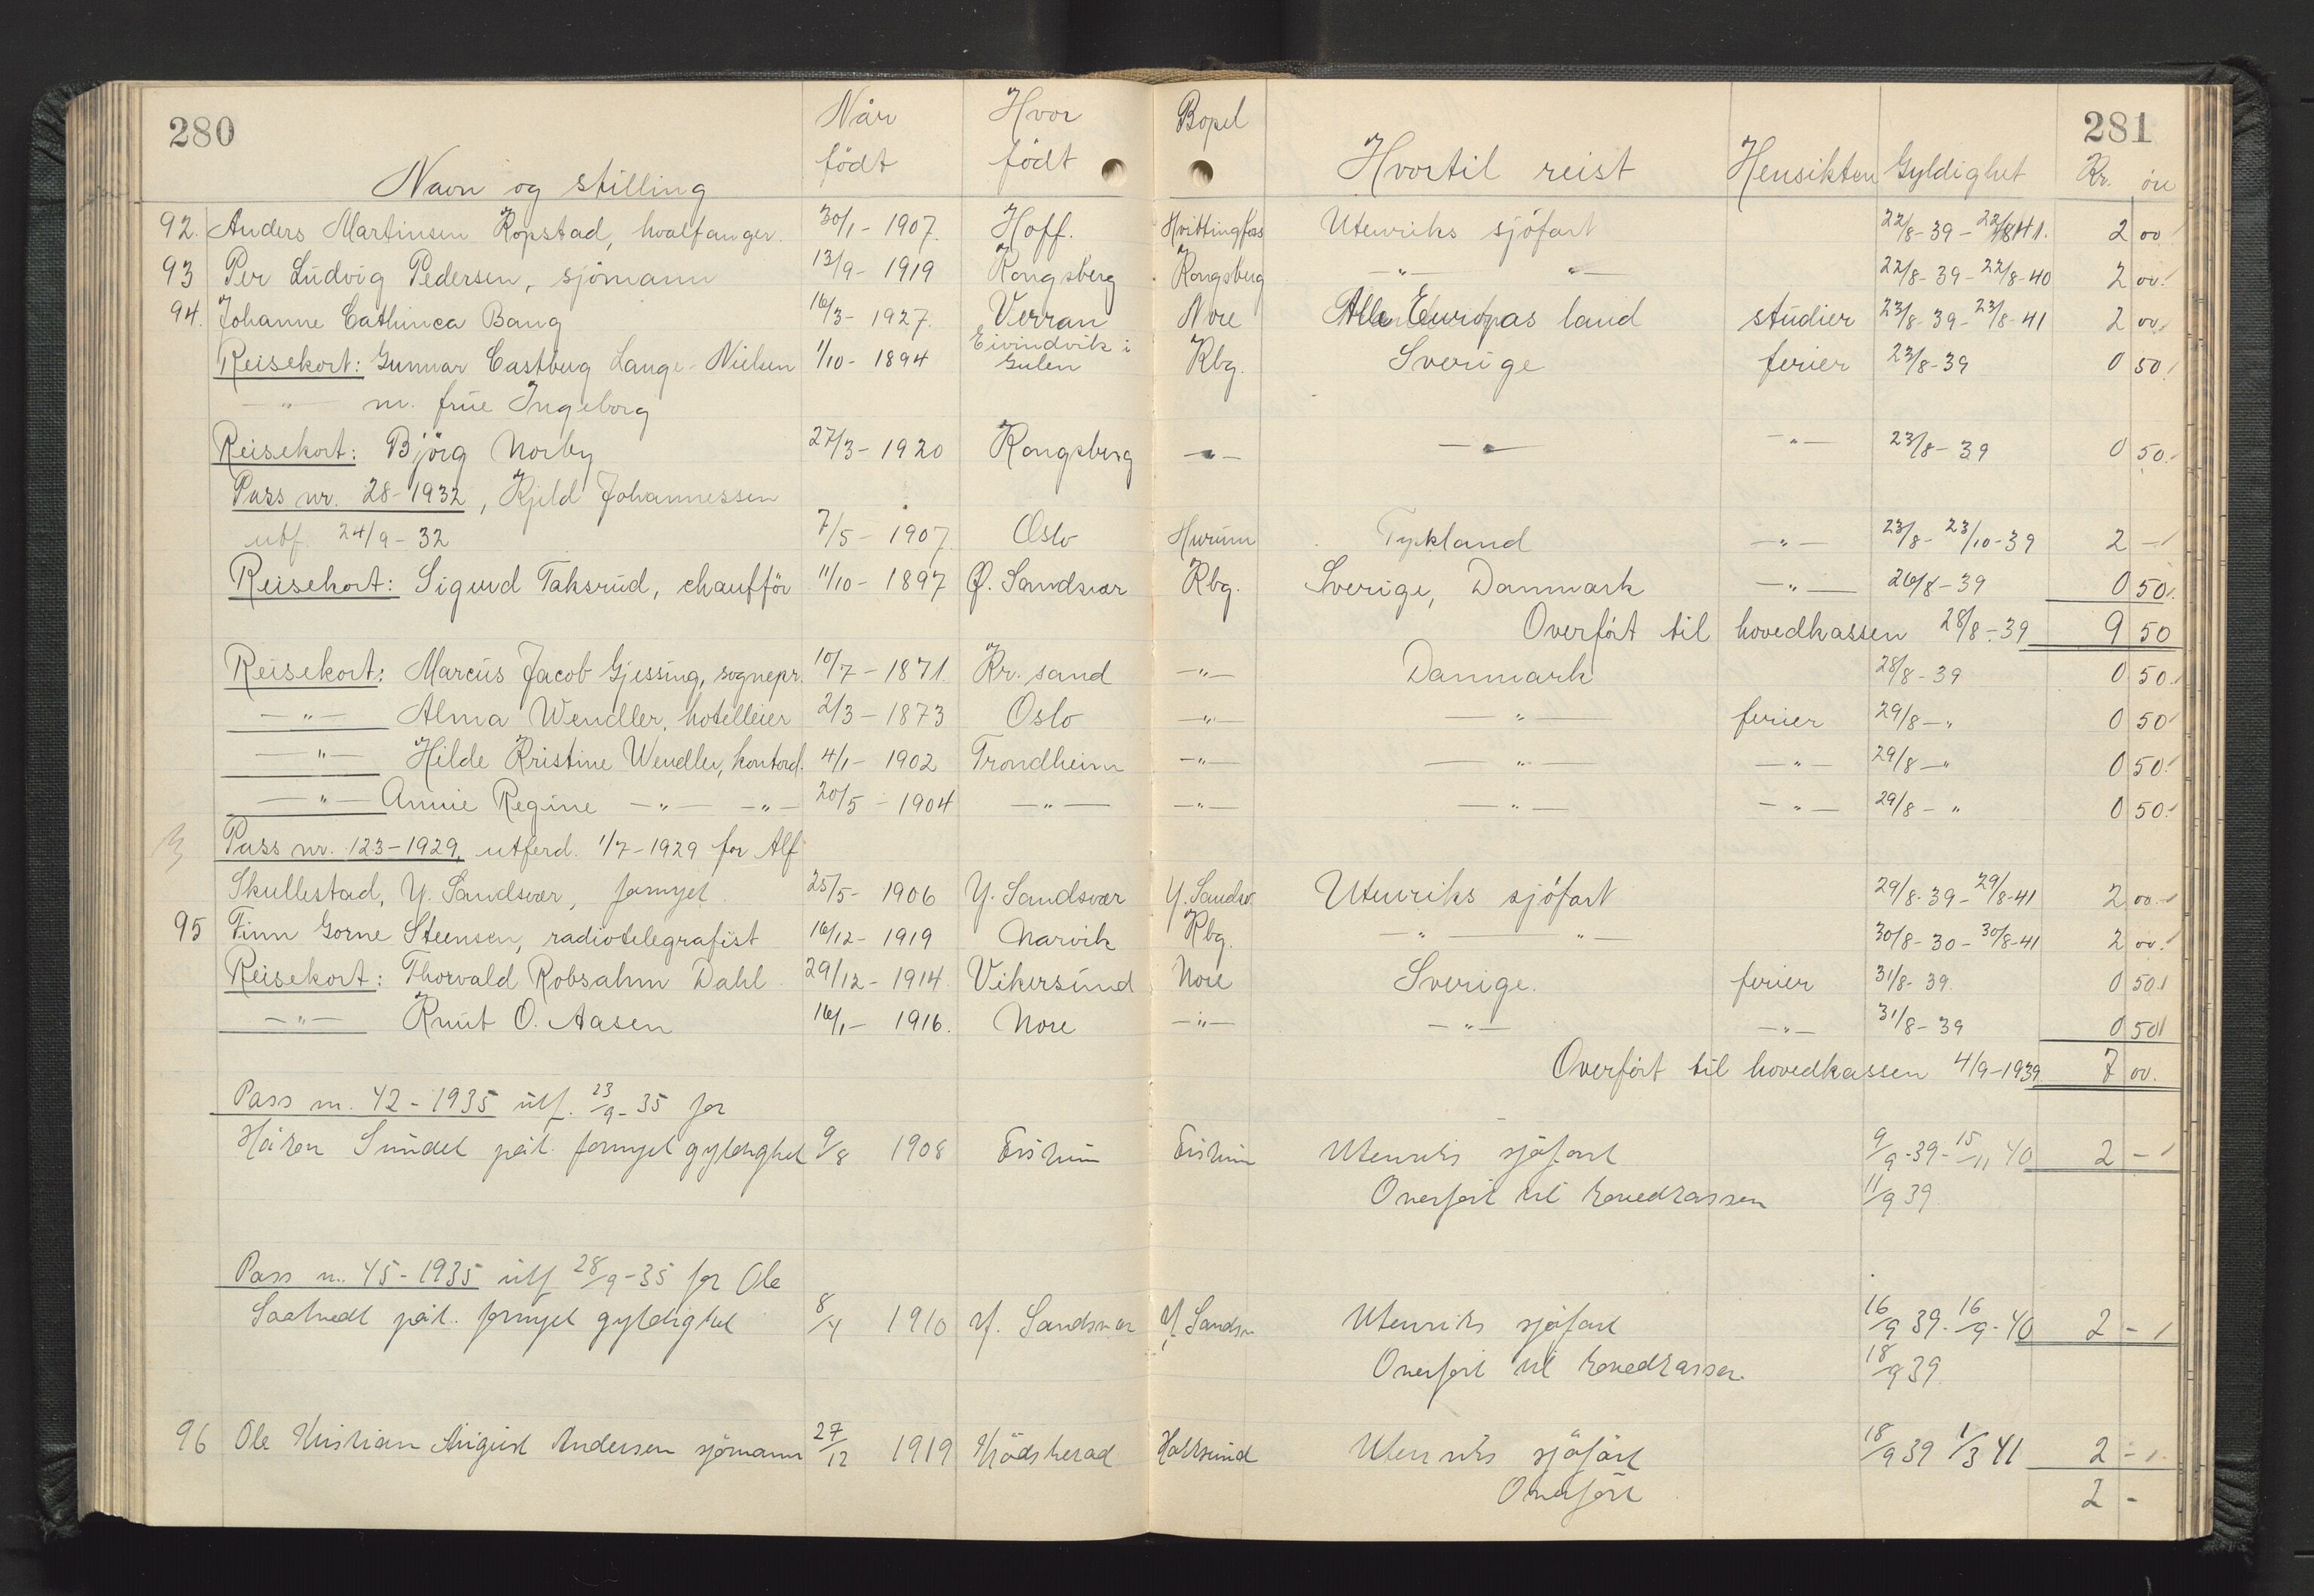 280
281
Når Hvor Bopel
Navn og stilling födt födt Hvortil reist Hensikten Gyldighet Kr. öre
92. Anders Martinsen Kopstad, hvalfanger. 30/1 - 1907. Hoff. Hvittingfos Utenriks sjöfart 22/8-39 - 22/8 41. 2 00
93 Per Ludvig Pedersen, sjömann 13/9 - 1919 Kongsberg Kongsberg —"— "— 22/8-39 - 22/8-40 2 00
94. Johanne Cathinca Bang 16/3 - 1927. Verran Nore Alle Europas land studier 23/8-39 - 23/8-41 2 00
Reisekort: Gunnar Castberg Lange-Nielsen 1/10 - 1894 Eivindvik i Gulen Kbg. Sverige ferier 23/8-39 0 50
—"— m. frue Ingeborg
Reisekort: Björg Norby 27/3 - 1920 Kongsberg —"— —"— —"— 23/8-39 0 50
Pass nr. 28-1932, Kjeld Johannessen
utf. 24/9-32 7/5 - 1907. Oslo Hurum Tyskland —"— 23/8 - 23/10-39 2 —
Reisekort: Sigurd Taksrud, chaufför 11/10 - 1897 Ø. Sandsvær Kbg. Sverige, Danmark —"— 26/8-39 0 50
Overfört til hovedkassen 28/8-39 9 50
Reisekort: Marcus Jacob Gjessing, sognepr. 10/7 - 1871. Kr. sand —"— Danmark 28/8-39 0 50
—"— Alma Wendler, hotelleier 2/3 - 1873 Oslo —"— —"— ferier 29/8 —" 0 50
—"— Hilde Kristine Wendler, kontord. 4/1 - 1902 Trondheim —"— —"— —"— 29/8 —" 0 50
—"— Annie Regine —"— —"— 20/5 - 1904 —"— —"— —"— —"— 29/8 - " 0 50
Pass nr. 123-1929, utferd. 1/7-1929 for Alf
Skullestad, Y. Sandsvær, fornyet 25/5 - 1906 Y. Sandsvær Y. Sandsv. Utenriks sjöfart 29/8-39 - 29/8-41 2 00
95 Finn Gorne Steensen, radiotelegrafist 16/12 - 1919 Narvik Kbg. —"— "— 30/8-30 - 30/8-41 2 00
Reisekort: Thorvald Robsahm Dahl 29/12 - 1914 Vikersund Nore Sverige. ferier 31/8-39. 0 50
—"— Knut O. Aasen 16/1 - 1916. Nore —"— —"— —"— 31/8-39 0 50
Overfört til hovedkassen 4/9-1939 7 00.
Pass nr. 42-1935 utf. 23/9-35 for
Håkon Sundet påt. fornyet gyldighet 9/8 1908 Utenriks sjöfart 9/9-39 - 15/11 40 2 —
Overfört til hovedkassen 11/9 39
Pass nr. 45-1935 utf 28/9-35 for Ole
Saatvedt påt. fornyet gyldighet 8/4 1910 Y. Sandsvær Y. Sandsv. Utenriks sjöfart 16/9 39 - 16/9-40 2 —
Overfört til hovedkassen. 18/9 39.
96 Ole Kristian August Andersen sjömann 27/12 1919 Krödsherad Hokksund Utenriks sjöfart 18/9 39 1/3 41 2 —
Overfört 2 —